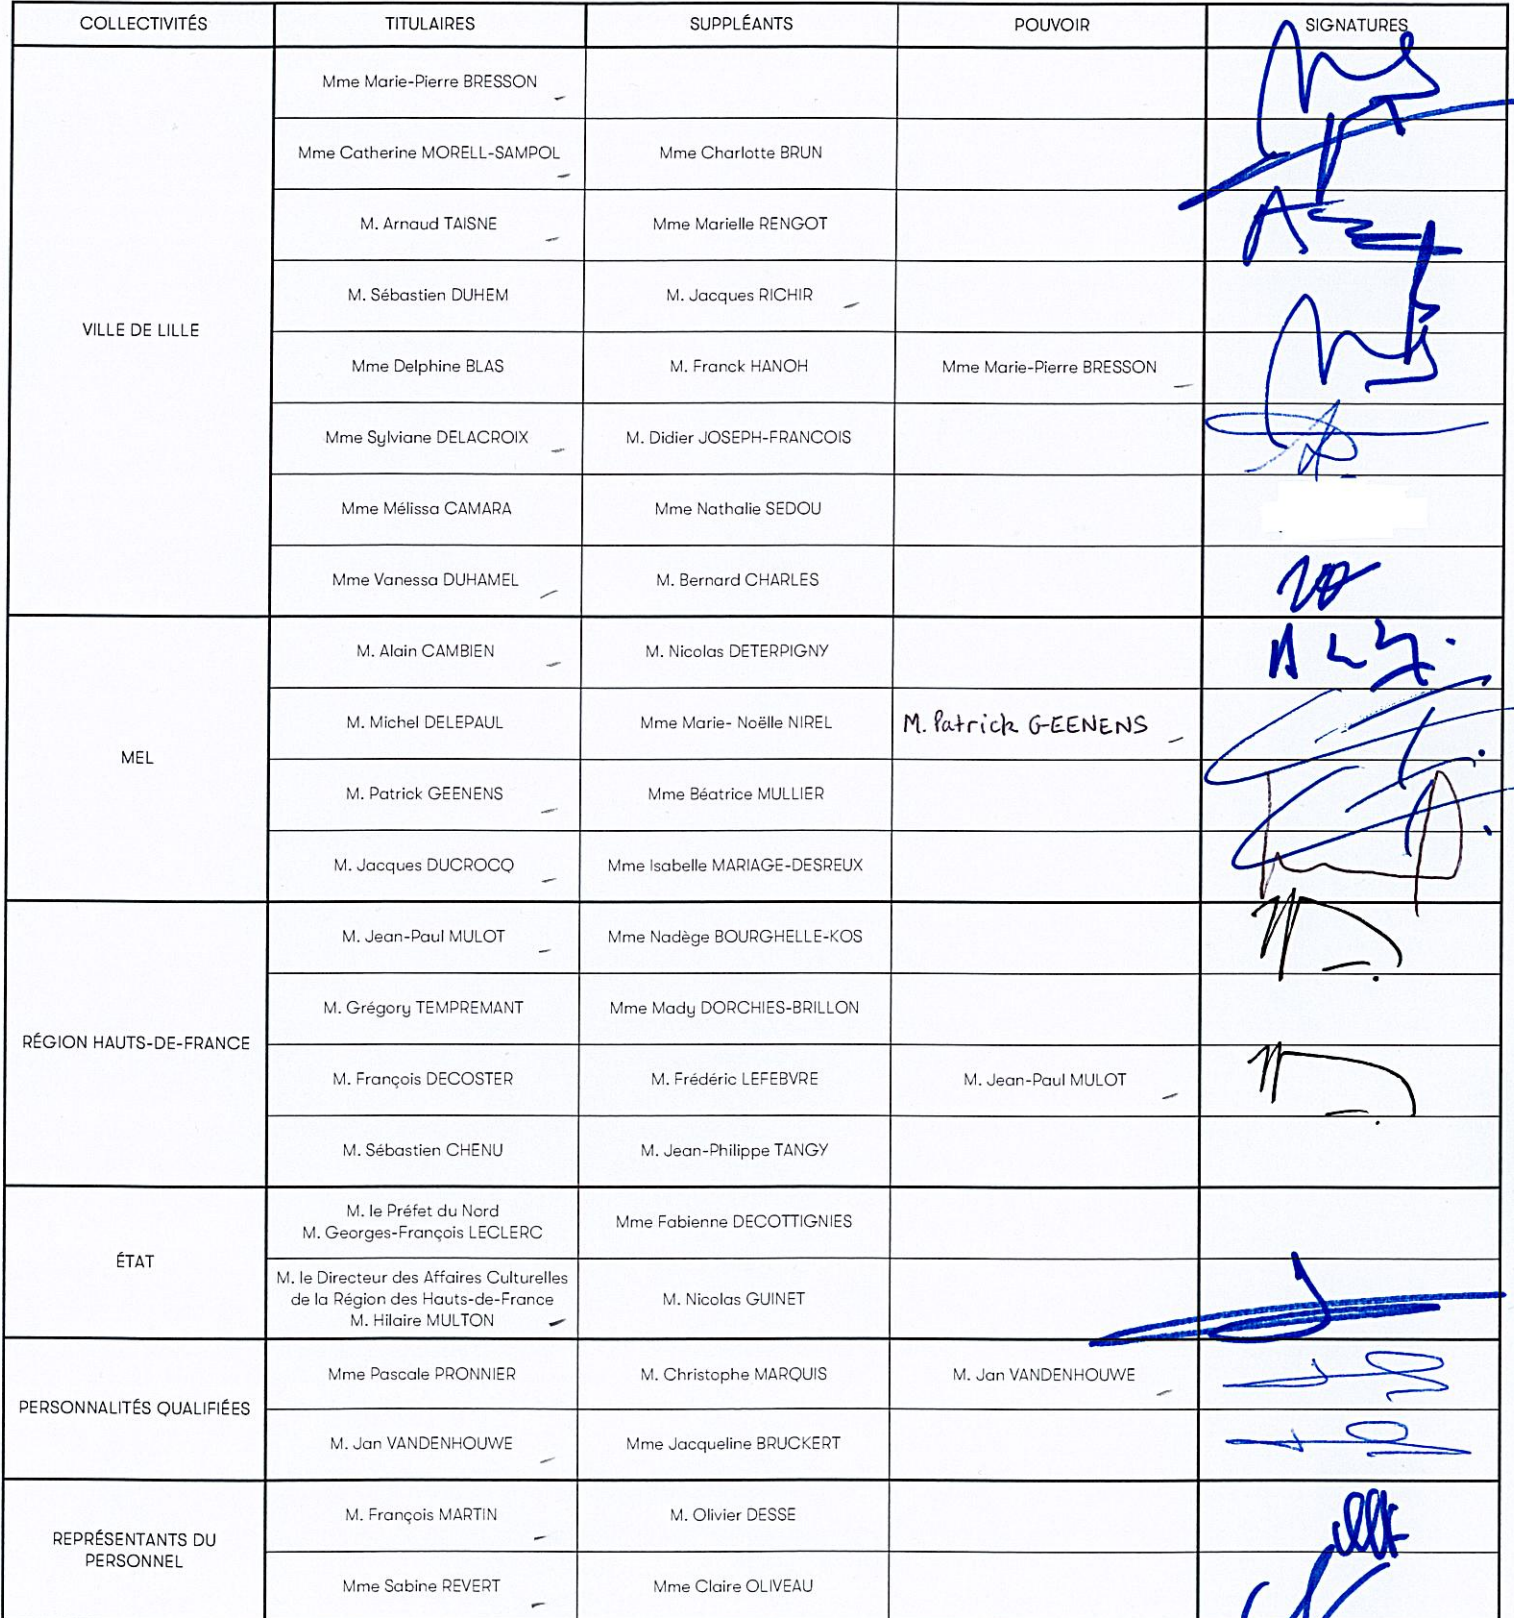 COLLECTIVITÉS TITULAIRES SUPPLÉANTS POUVOIR SIGNATURES
VILLE DE LILLE
Mme Marie-Pierre BRESSON
Mme Catherine MORELL-SAMPOL Mme Charlotte BRUN
M. Arnaud TAISNE Mme Marielle RENGOT
M. Sébastien DUHEM M. Jacques RICHIR
Mme Delphine BLAS M. Franck HANOH Mme Marie-Pierre BRESSON
Mme Sylviane DELACROIX M. Didier JOSEPH-FRANCOIS
Mme Mélissa CAMARA Mme Nathalie SEDOU
Mme Vanessa DUHAMEL M. Bernard CHARLES
MEL
M. Alain CAMBIEN M. Nicolas DETERPIGNY
M. Michel DELEPAUL Mme Marie- Noëlle NIREL M. Patrick GEENENS
M. Patrick GEENENS Mme Béatrice MULLIER
M. Jacques DUCROCQ Mme Isabelle MARIAGE-DESREUX
RÉGION HAUTS-DE-FRANCE
M. Jean-Paul MULOT Mme Nadège BOURGHELLE-KOS
M. Grégory TEMPREMANT Mme Mady DORCHIES-BRILLON
M. François DECOSTER M. Frédéric LEFEBVRE M. Jean-Paul MULOT
M. Sébastien CHENU M. Jean-Philippe TANGY
ÉTAT
M. le Préfet du Nord
M. Georges-François LECLERC Mme Fabienne DECOTTIGNIES
M. le Directeur des Affaires Culturelles
de la Région des Hauts-de-France
M. Hilaire MULTON M. Nicolas GUINET
PERSONNALITÉS QUALIFIÉES
Mme Pascale PRONNIER M. Christophe MARQUIS M. Jan VANDENHOUWE
M. Jan VANDENHOUWE Mme Jacqueline BRUCKERT
REPRÉSENTANTS DU
PERSONNEL
M. François MARTIN M. Olivier DESSE
Mme Sabine REVERT Mme Claire OLIVEAU